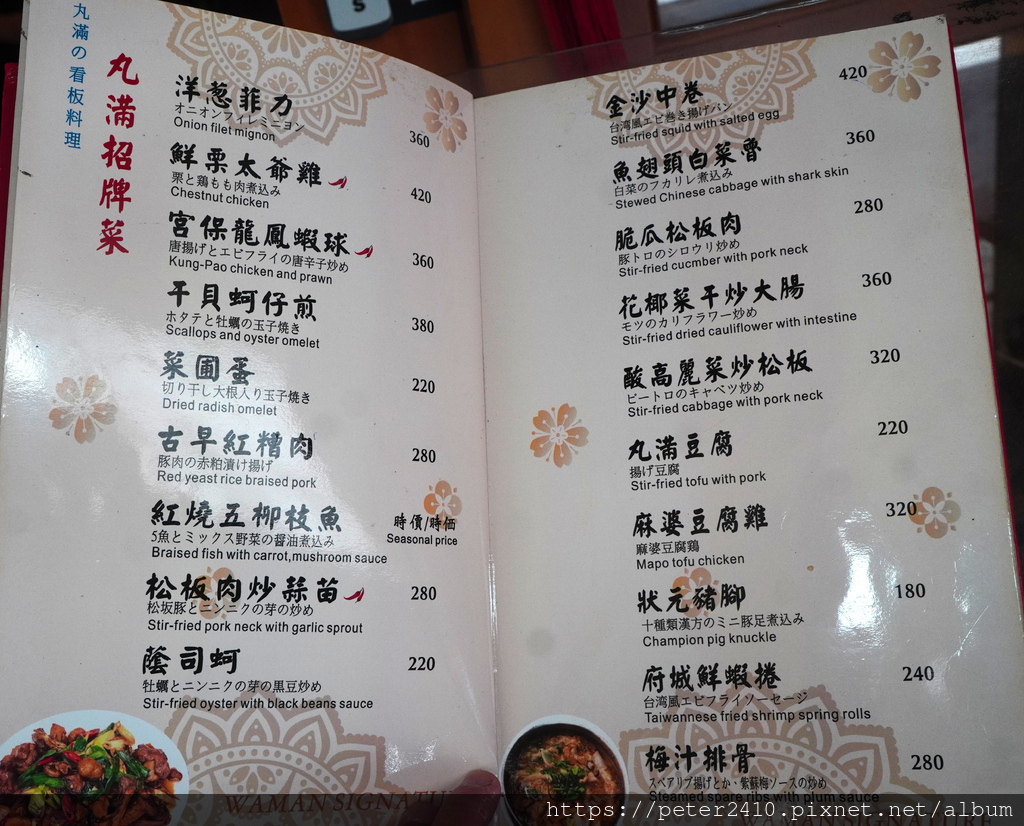 S
丸滿の看板料理
丸滿招牌菜
洋葱菲力
オニオンフィレミニヨン
Onion filet mignon
360
鮮栗太爺雞
栗と鶏もも肉煮込み
Chestnut chicken
420
宮保龍鳳蝦球
唐揚げとエビフライの唐辛子炒め
Kung-Pao chicken and prawn
360
干貝蚵仔煎
ホタテと牡蠣の玉子焼き
Scallops and oyster omelet
380
菜圃蛋
切り干し大根入り玉子焼き
Dried radish omelet
220
古早紅糟肉
豚肉の赤粕漬け揚げ
Red yeast rice braised pork
280
紅燒五柳枝魚
5魚とミックス野菜の醤油煮込み
Braised fish with carrot,mushroom sauce
時價/時価
Seasonal price
松板肉炒蒜苗
松坂豚とニンニクの芽の炒め
Stir-fried pork neck with garlic sprout
280
蔭司蚵
牡蠣とニンニクの芽の黒豆炒め
Stir-fried oyster with black beans sauce
220
WAMAN SIGNATU
金沙中卷
台湾風エビ巻き揚げパン
Stir-fried squid with salted egg
420
魚翅頭白菜魯
白菜のフカリレ煮込み
Stewed Chinese cabbage with shark skin
360
脆瓜松板肉
豚トロのシロウリ炒め
Stir-fried cucmber with pork neck
280
花椰菜干炒大腸
モツのカリフラワー炒め
Stir-fried dried cauliflower with intestine
360
酸高麗菜炒松板
ピートロのキャベツ炒め
Stir-fried cabbage with pork neck
320
丸滿豆腐
揚げ豆腐
Stir-fried tofu with pork
220
麻婆豆腐雞
麻婆豆腐鶏
Mapo tofu chicken
320
狀元豬腳
十種類漢方のミニ豚足煮込み
Champion pig knuckle
180
府城鮮蝦捲
台湾風エビフライソーセージ
Taiwannese fried shrimp spring rolls
240
梅汁排骨
スペアリブ揚げとか・紫蘇梅ソースの炒め
Steamed spare ribs with plum sauce
280
https://peter2410.pixnet.net/album